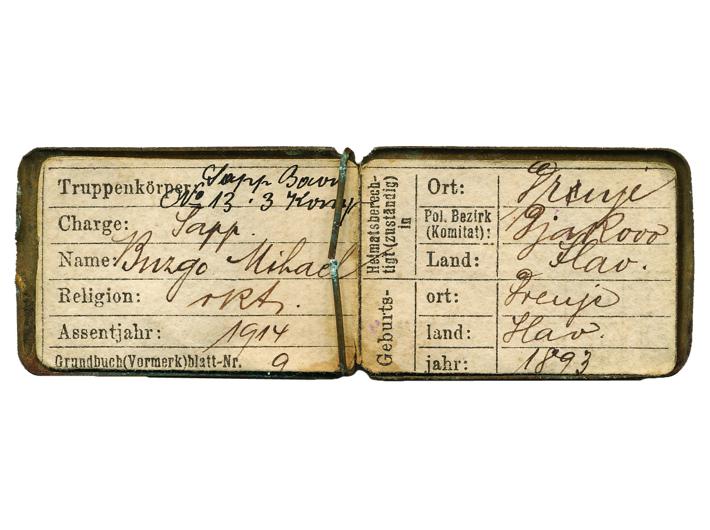 Truppenkörper: Sapp Baon
No 13 · 3 Komp
Charge: Sapp.
Name: Buzgo Mihael
Religion: rkt.
Assentjahr: 1914
Grundbuch(Vormerk)blatt-Nr. 9
Heimatsberech-
tigt (zuständig)
in
Ort: Drenje
Pol. Bezirk
(Komitat): Djakovo
Land: Slav.
Geburts-
ort: Drenje
land: Slav.
jahr: 1893